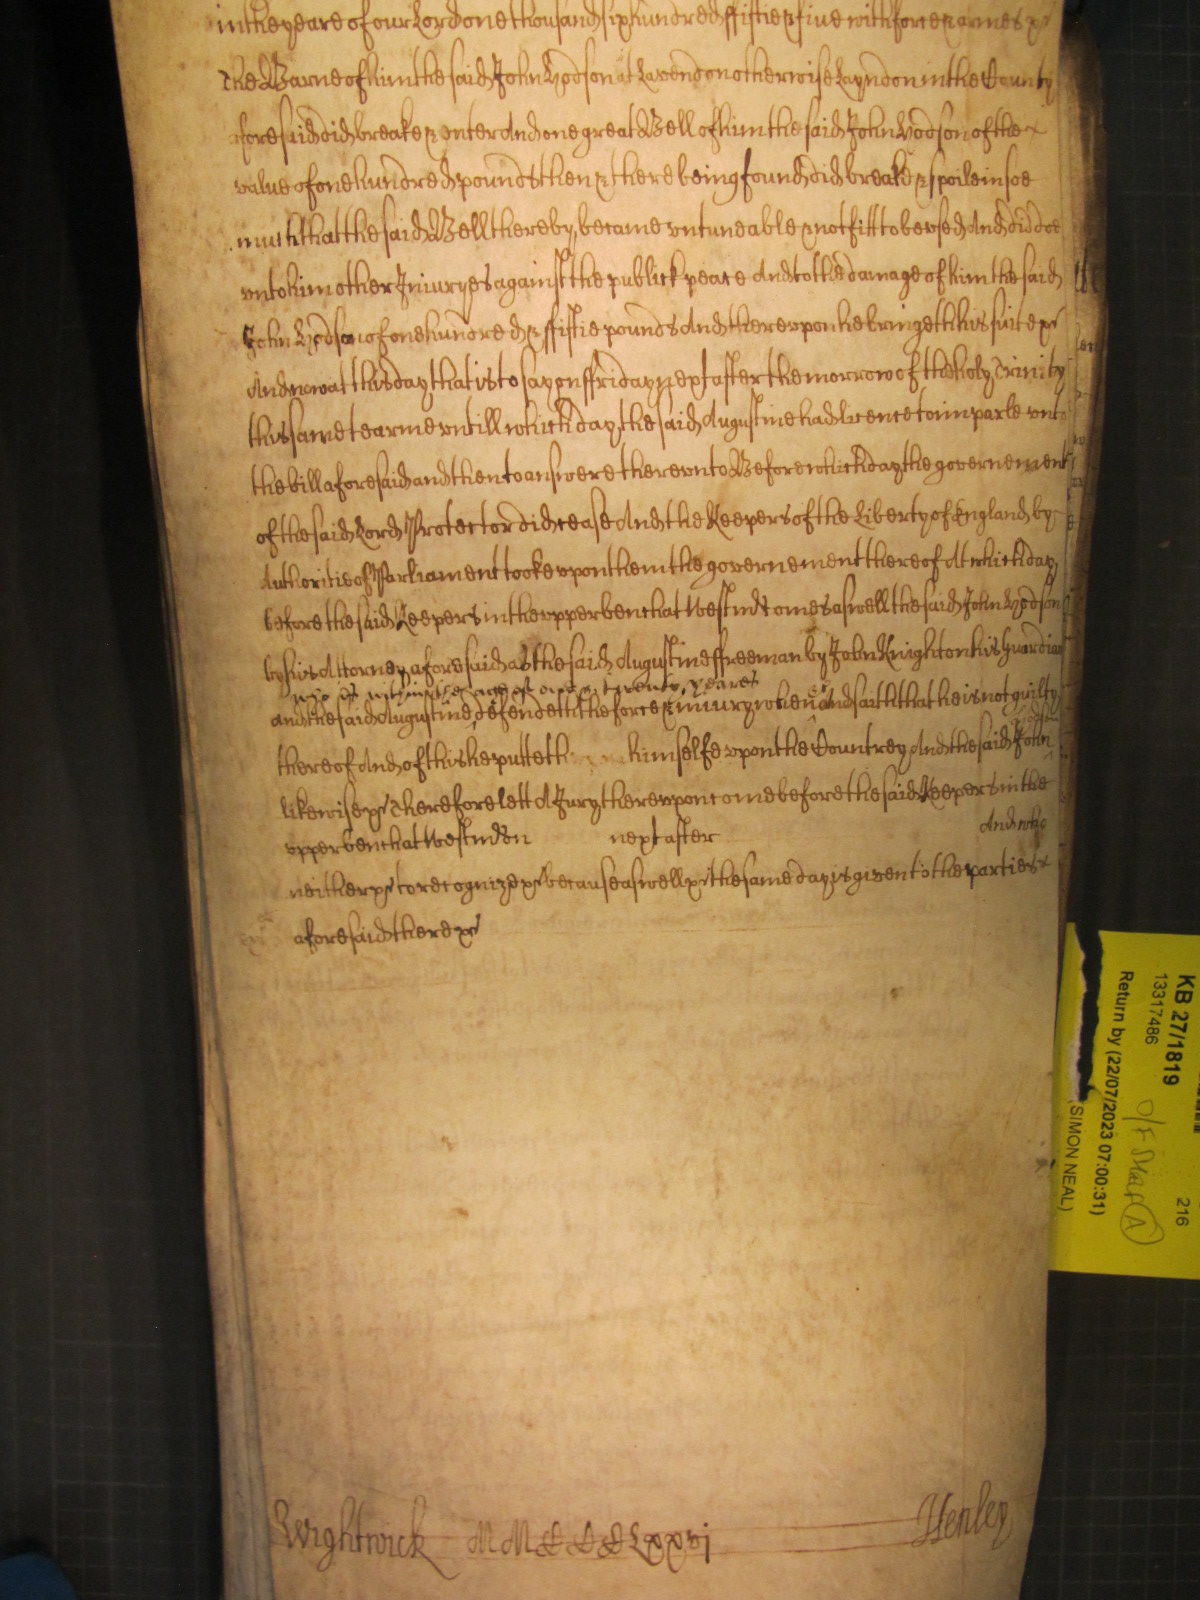 in the yeare of our Lord one thousand six hundred ffiftie & five with force & armes &c
the Barne of him the said John Hodson at Lavendon otherwise Layndon in the County
aforesaid did breake & enter And one great Bell of him the said John Hodson of the
value of one hundred pounds then & there being found did breake & spoile in soe
much that the said Bell thereby became untuneable & not fitt to be used And did doe
unto him other Iniuryes against the publick peace And to the damage of him the said
John Hodson of one hundred & ffiftie pounds And thereupon he bringeth his suite &c
And now at this day that is to say on ffriday next after the morrow of the holy Trinity
this same tearme untill which day the said Augustine had licence to imparle unto
the bill aforesaid and then to answere thereunto Before which day the governement
of the said Lord Protector did cease And the Keepers of the Liberty of England by
Authoritie of Parliament tooke upon them the governement thereof At which day
before the said Keepers in the upper bench at Westmr comes aswell the said John Hodson
by his Attorney aforesaid as the said Augustine ffreeman by John Knighton his Guardian
who is within the age of one & twenty yeares
and the said Augustine defendeth the force & iniury when &c And saith that he is not guilty
thereof And of this he putteth himselfe upon the Countrey And the said John Hodson
likewise &c Therefore lett A Jury thereupon come before the said Keepers in the
upper bench at Westmr on next after And who
neither &c to recognize &c because aswell &c the same day is given to the parties
aforesaid there &c
Wightwick MMCCCCLxxvj Henley
KB 27/1819
13317486
216
O/F
(A)
Return by (22/07/2023 07:00:31)
(SIMON NEAL)